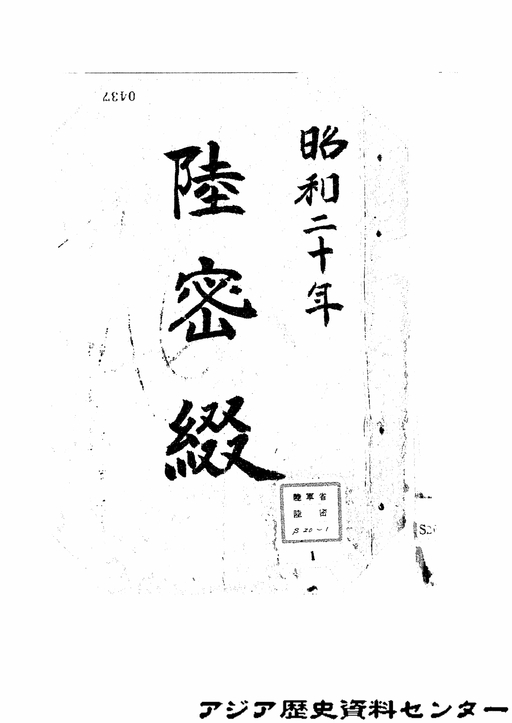 0437
昭和二十年
陸密綴
陸軍省
陸密
S20-1
1
アジア歴史資料センター